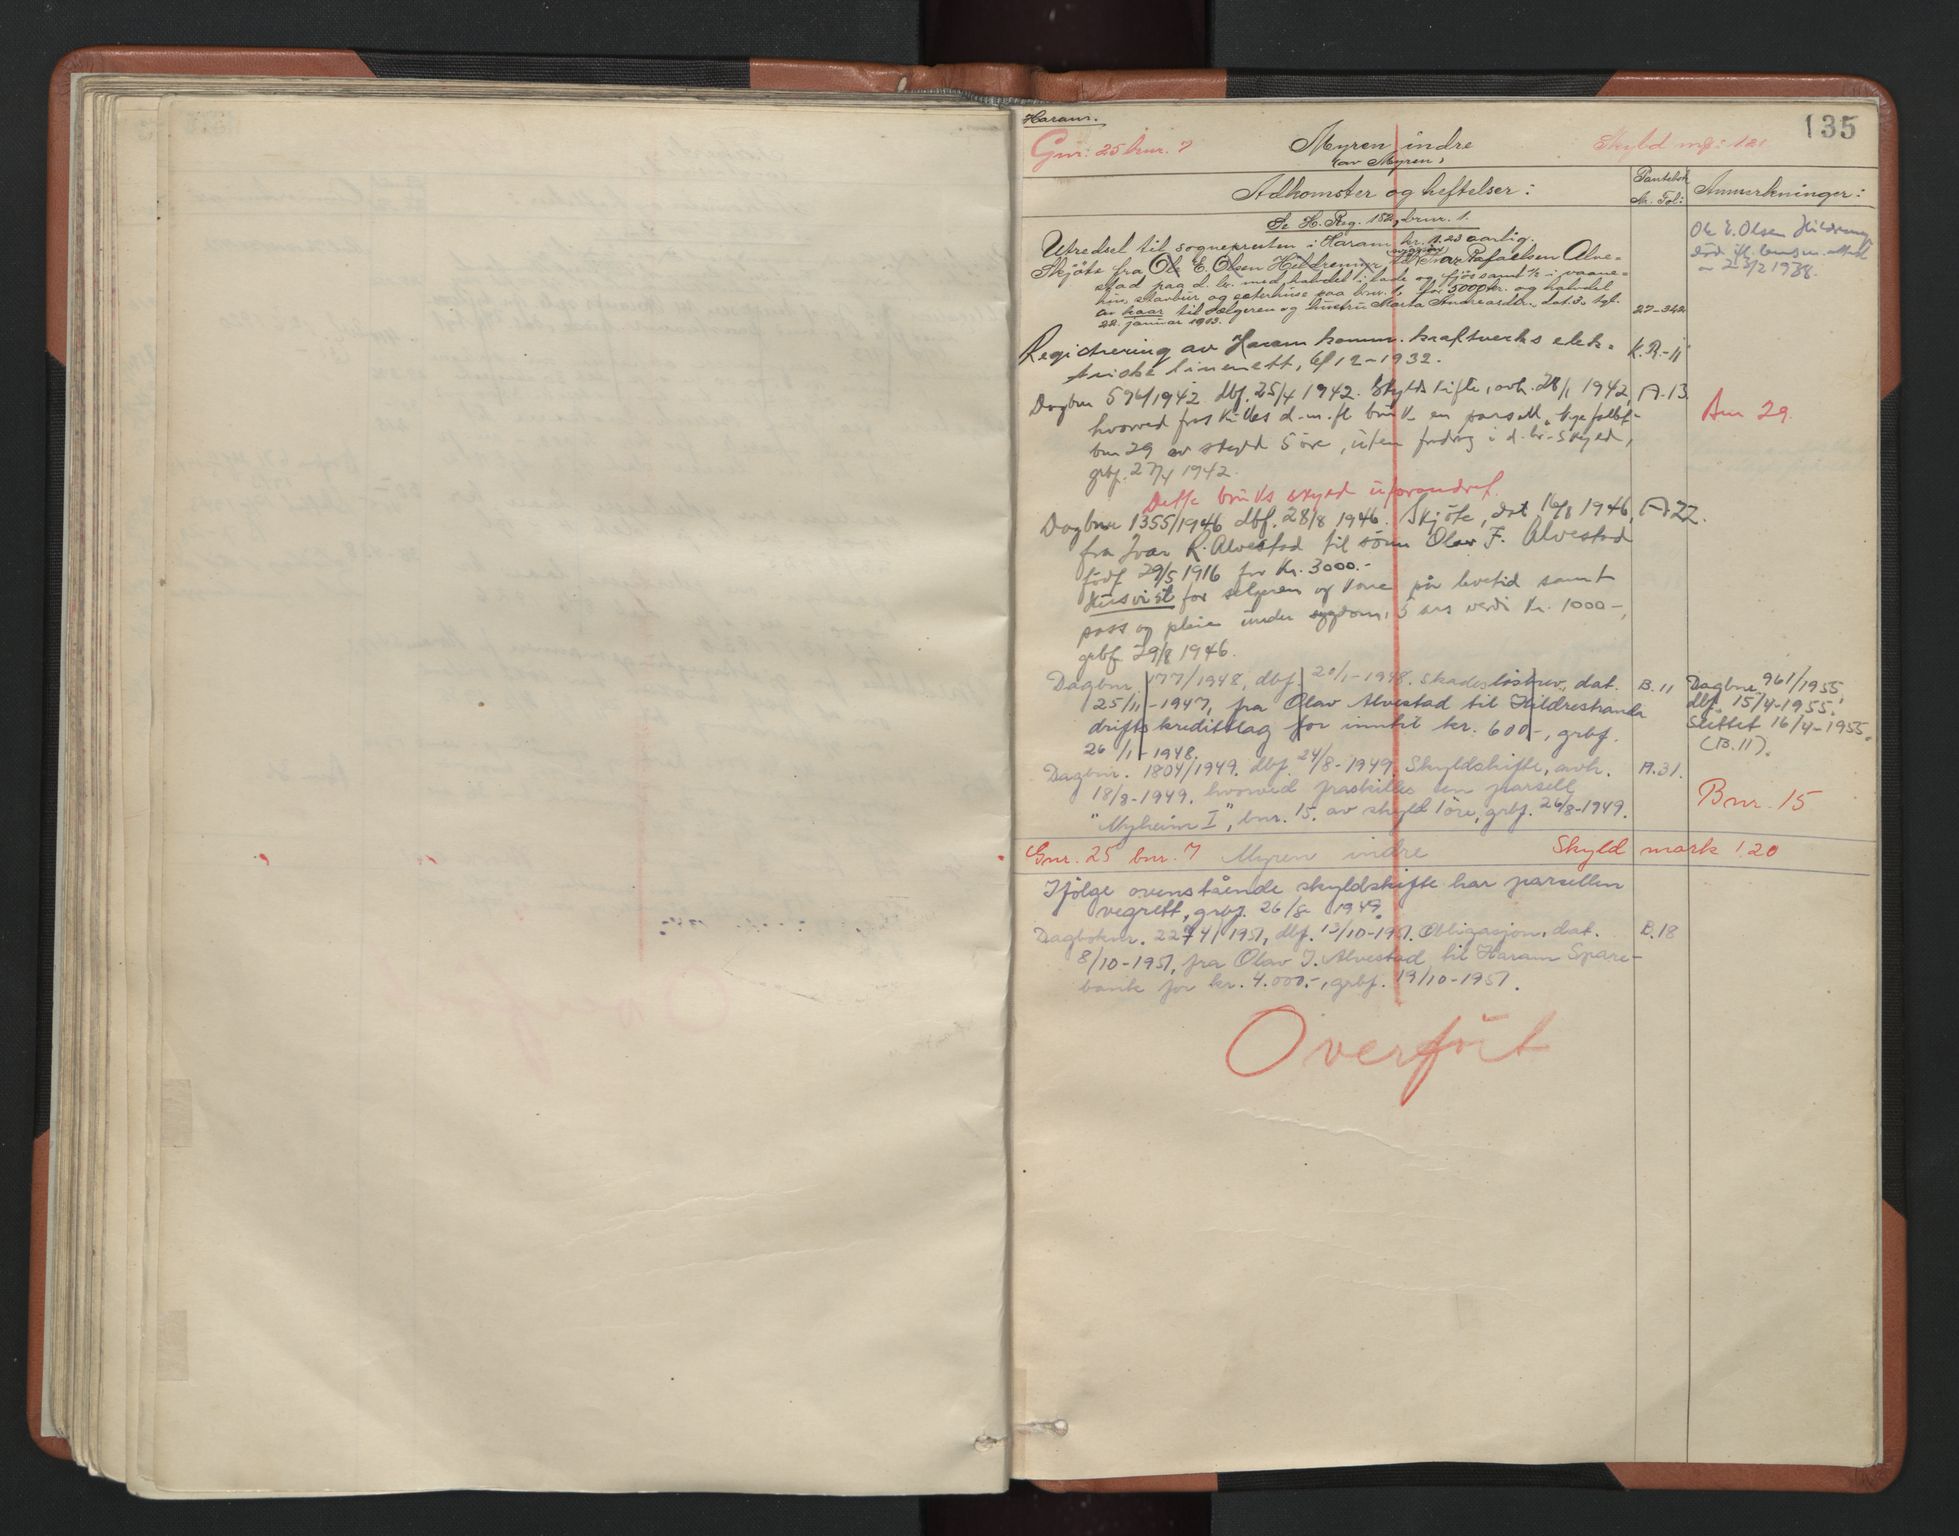 Haram.
135
Gnr: 25 bnr. 7 Myren indre Skyld mg: 1.21
(av Myren)
Adkomster og heftelser: Pantebok Nr. Fol: Anmerkninger:
Se H. Reg. 152, bnr. 1.
Utredsel til sognepresten i Haram kr. 1.23 aarlig.
Skjöte fra Ole E. Olsen Hildremyr til Ivar Rafaelsen Alve-
stad paa d. br. med halvdel i lade og fjös samt 1/2 i vaane-
hus, stavbur og seterhuse paa bnr. 1, for 5000 kr. og halvdel
av kaar til sælgeren og hustru Marta Andreasdtr., dat. 3. tgl.
22. januar 1913. 27-342
Ole E. Olsen Hildremyr
död ifl.
23/2 1938.
Registrering av Haram komm. kraftverks elek-
triske linenett, 12-1932. K.R.-11
Dagbnr 596/1942 dbf. 25/4 1942. Skyldskifte, avh. 28/1 1942, A.13
hvorved fraskilles d. m. fl. bruk en parsell,
bnr 29 av skyld 5 öre, uten fradrag i d. br. skyld,
grbf. 27/4 1942.
Bnr 29.
Dette bruks skyld uforandret.
Dagbnr 1355/1946 dbf. 28/8 1946. Skjöte, dat 16/8 1946, A 22.
fra Ivar R. Alvestad til sönn Olav J. Alvestad
född 29/5 1916 for Kr. 3000.-
Husvist for selgeren og kone på levetid samt
pass og pleie under sygdom, 5 års verdi Kr. 1000-,
grbf. 29/8 1946.
Dagbnr. 177/1948, dbf. 20/1-1948. Skadeslösbrev, dat. B. 11
25/11-1947, fra Olav Alvestad til Hildrestranda
driftskredittlag for inntil kr. 600-, grbf.
26/1-1948.
Dagbnr. 961/1955,
dbf. 15/4-1955.
Slettet 16/4-1955.
(B.11).
Dagbnr. 1804/1949. dbf. 24/8-1949. Skyldskifte, avh. A.31.
18/8-1949. hvorved fraskilles en parsell
"Myheim I", bnr. 15. av skyld 1 öre, grbf. 26/8-1949.
Bnr. 15
Gnr. 25 bnr. 7 Myren indre Skyld mark 1.20
Ifölge ovenstående skyldskifte har parsellen
vegrett, grbf. 26/8 1949.
Dagboknr. 2274/1951, dbf. 13/10-1951. Obligasjon, dat. B.18
8/10-1951, fra Olav J. Alvestad til Haram Spare-
bank for kr. 4.000.-, grbf. 19/10-1951.
Overfört